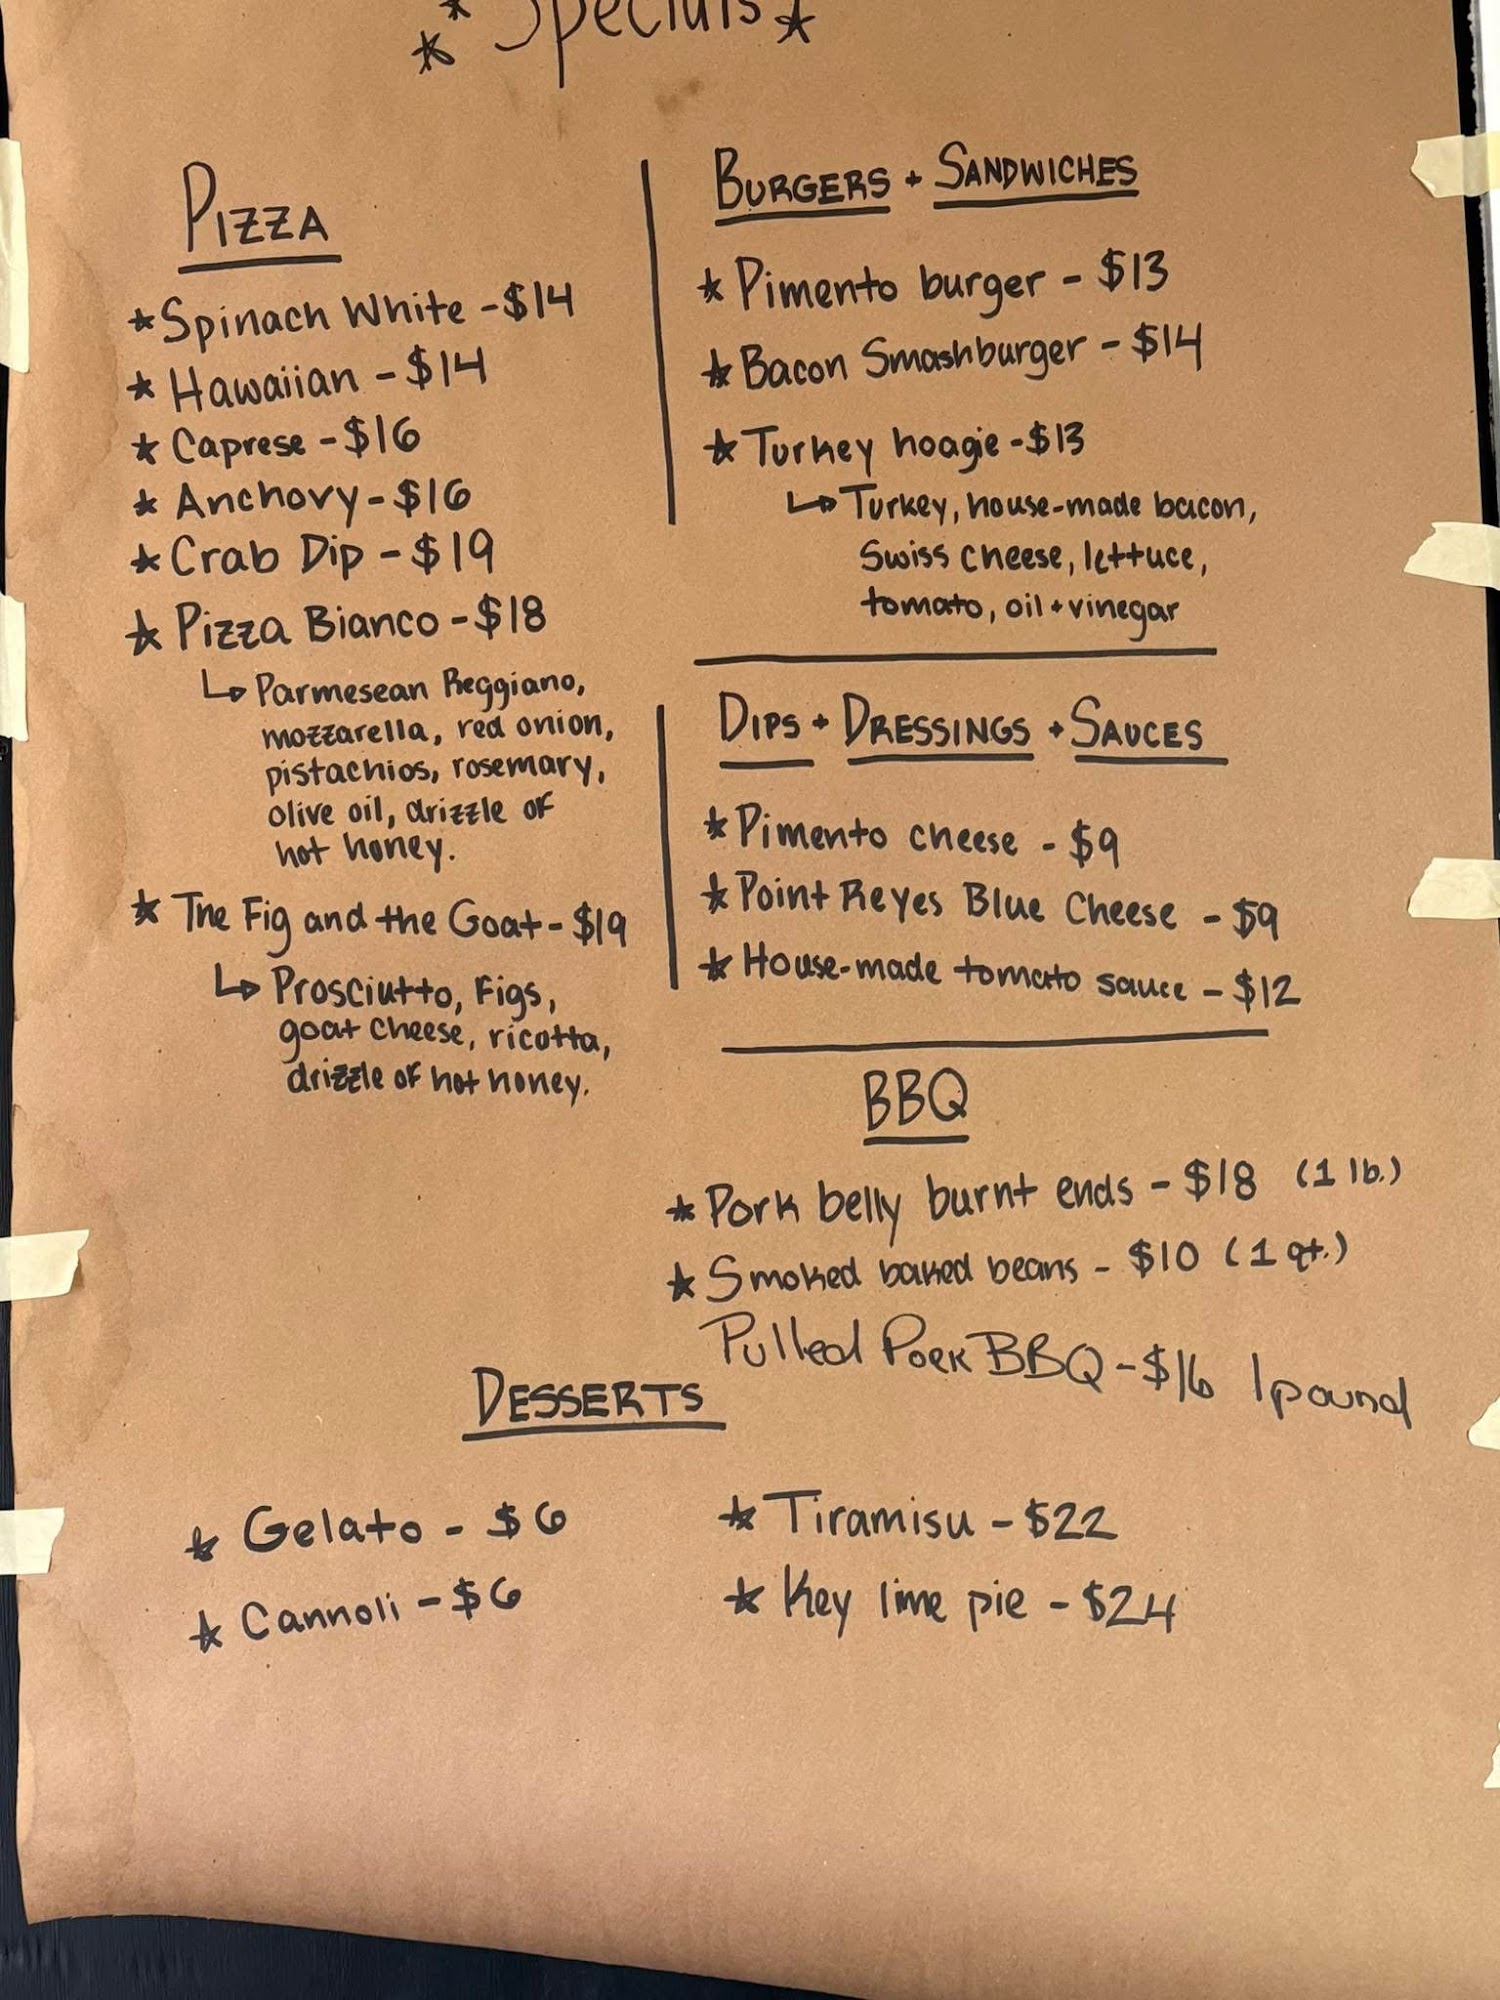 * Specials *
*
PIZZA
* Spinach White - $14
* Hawaiian - $14
* Caprese - $16
* Anchovy - $16
* Crab Dip - $19
* Pizza Bianco - $18
↳ Parmesean Reggiano,
mozzarella, red onion,
pistachios, rosemary,
olive oil, drizzle of
hot honey.
* The Fig and the Goat - $19
↳ Prosciutto, Figs,
goat cheese, ricotta,
drizzle of hot honey.
BURGERS + SANDWICHES
* Pimento burger - $13
* Bacon Smashburger - $14
* Turkey hoagie - $13
↳ Turkey, house-made bacon,
Swiss cheese, lettuce,
tomato, oil + vinegar
DIPS + DRESSINGS + SAUCES
* Pimento cheese - $9
* Point Reyes Blue Cheese - $9
* House-made tomato sauce - $12
BBQ
* Pork belly burnt ends - $18 (1 lb.)
* Smoked baked beans - $10 (1 qt.)
Pulled Pork BBQ - $16 1 pound
DESSERTS
* Gelato - $6
* Cannoli - $6
* Tiramisu - $22
* Key lime pie - $24